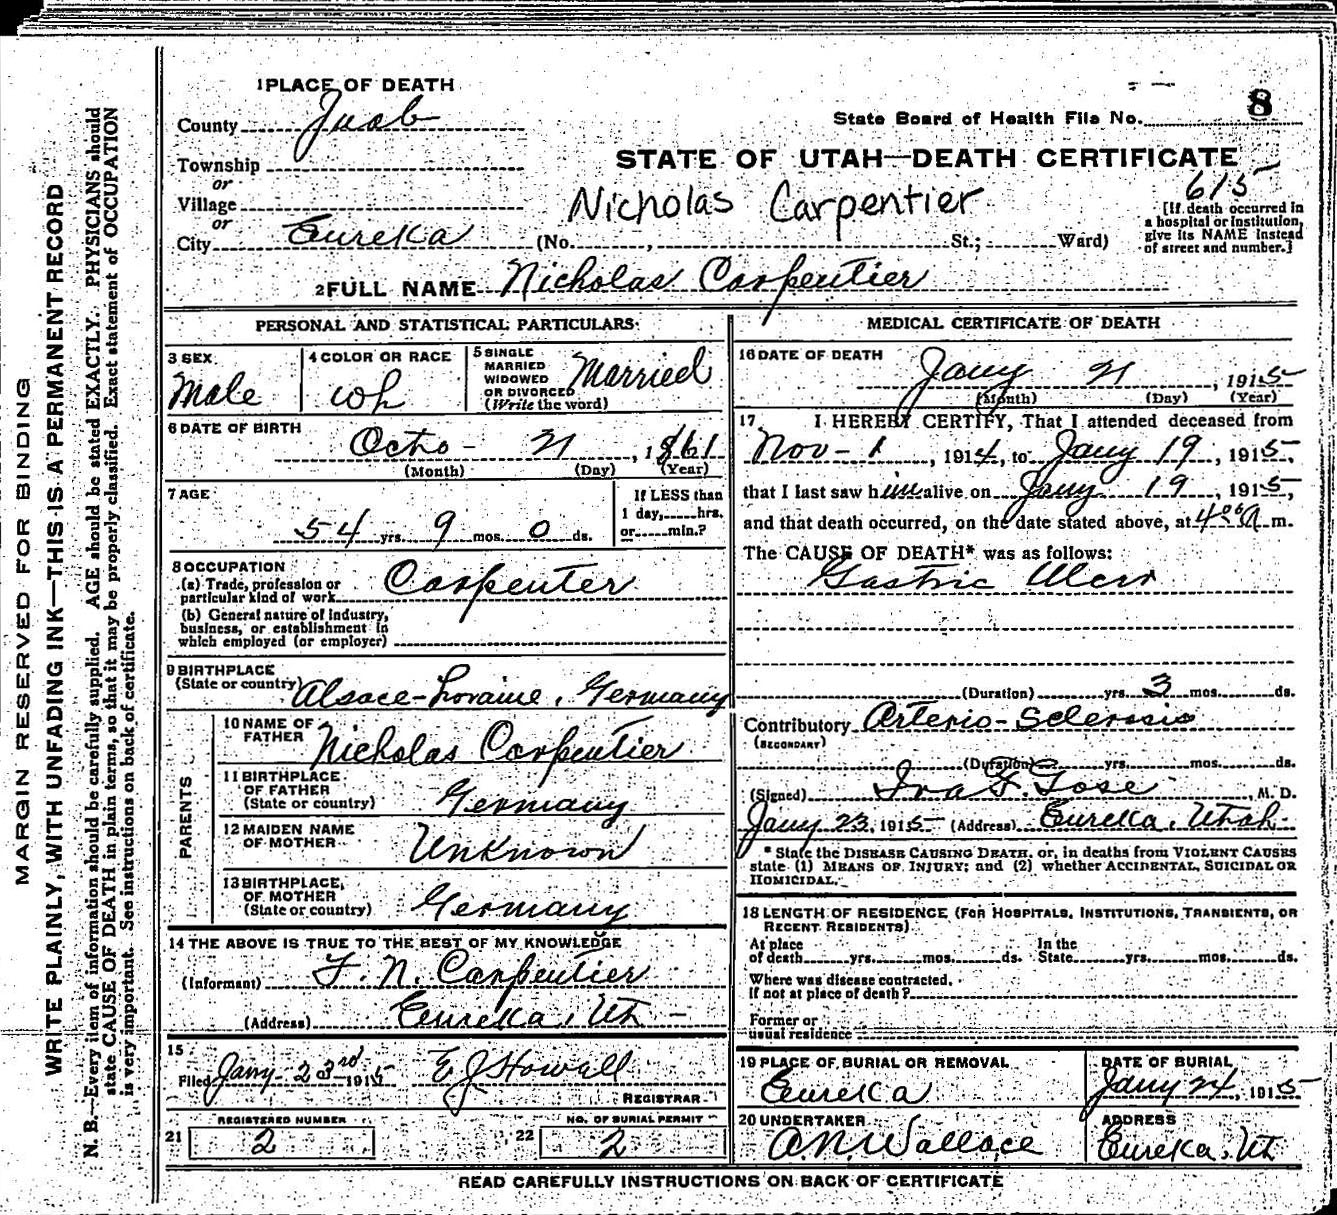 1 PLACE OF DEATH
County Juab
State Board of Health File No. 8
Township
STATE OF UTAH—DEATH CERTIFICATE
or
Village
Nicholas Carpentier
615
or
City Eureka (No. , St.; Ward)
[If death occurred in
a hospital or institution,
give its NAME instead
of street and number.]
2 FULL NAME Nicholas Carpentier
PERSONAL AND STATISTICAL PARTICULARS
3 SEX
Male
4 COLOR OR RACE
Wh
5 SINGLE
MARRIED
WIDOWED
OR DIVORCED
(Write the word)
Married
6 DATE OF BIRTH
Octo- 21, 1861
(Month) (Day) (Year)
7 AGE
54 yrs. 9 mos. 0 ds.
If LESS than
1 day, hrs.
or min.?
8 OCCUPATION
(a) Trade, profession or
particular kind of work Carpenter
(b) General nature of industry,
business, or establishment in
which employed (or employer)
9 BIRTHPLACE
(State or country) Alsace-Loraine, Germany
PARENTS
10 NAME OF
FATHER Nicholas Carpentier
11 BIRTHPLACE
OF FATHER
(State or country) Germany
12 MAIDEN NAME
OF MOTHER Unknown
13 BIRTHPLACE,
OF MOTHER
(State or country) Germany
14 THE ABOVE IS TRUE TO THE BEST OF MY KNOWLEDGE
(Informant) F. N. Carpentier
(Address) Eureka, Ut -
15
Filed Jany 23rd 1915 E J Howell
REGISTRAR
REGISTERED NUMBER
21 2
NO. OF BURIAL PERMIT
22 2
MEDICAL CERTIFICATE OF DEATH
16 DATE OF DEATH
Jany 21, 1915
(Month) (Day) (Year)
17 I HEREBY CERTIFY, That I attended deceased from
Nov- 1, 1914, to Jany 19, 1915,
that I last saw him alive on Jany 19, 1915,
and that death occurred, on the date stated above, at 4 00 A m.
The CAUSE OF DEATH* was as follows:
Gastric Ulcer
(Duration) yrs. 3 mos. ds.
Contributory Arterio-Sclerosis
(SECONDARY)
(Duration) yrs. mos. ds.
(Signed) Ira F. Gose, M. D.
Jany 23, 1915 (Address) Eureka, Utah.
* State the DISEASE CAUSING DEATH, or, in deaths from VIOLENT CAUSES
state (1) MEANS OF INJURY; and (2) whether ACCIDENTAL, SUICIDAL OR
HOMICIDAL.
18 LENGTH OF RESIDENCE (FOR HOSPITALS, INSTITUTIONS, TRANSIENTS, OR
RECENT RESIDENTS).
At place
of death yrs. mos. ds.
In the
State yrs. mos. ds.
Where was disease contracted,
if not at place of death?
Former or
usual residence
19 PLACE OF BURIAL OR REMOVAL
Eureka
DATE OF BURIAL
Jany 24, 1915
20 UNDERTAKER
A. N. Wallace
ADDRESS
Eureka, Ut
READ CAREFULLY INSTRUCTIONS ON BACK OF CERTIFICATE
MARGIN RESERVED FOR BINDING
WRITE PLAINLY, WITH UNFADING INK—THIS IS A PERMANENT RECORD
N. B.—Every item of information should be carefully supplied. AGE should be stated EXACTLY. PHYSICIANS should
state CAUSE OF DEATH in plain terms, so that it may be properly classified. Exact statement of OCCUPATION
is very important. See instructions on back of certificate.